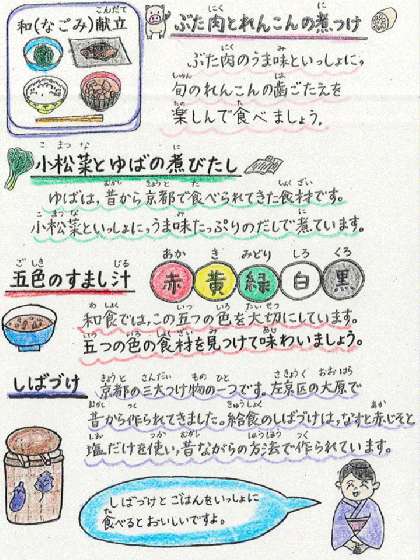 和(なごみ)献立
ぶた肉とれんこんの煮つけ
ぶた肉のうま味といっしょに、
旬のれんこんの歯ごたえを
楽しんで食べましょう。
小松菜とゆばの煮びたし
ゆばは、昔から京都で食べられてきた食材です。
小松菜といっしょに、うま味たっぷりのだしで煮ています。
五色のすまし汁
赤 黄 緑 白 黒
和食では、この五つの色を大切にしています。
五つの色の食材を見つけて味わいましょう。
しばづけ
京都の三大つけ物の一つです。左京区の大原で
昔から作られてきました。給食のしばづけは、なすと赤じそと
塩だけを使い、昔ながらの方法で作られています。
しばづけとごはんをいっしょに
食べるとおいしいですよ。